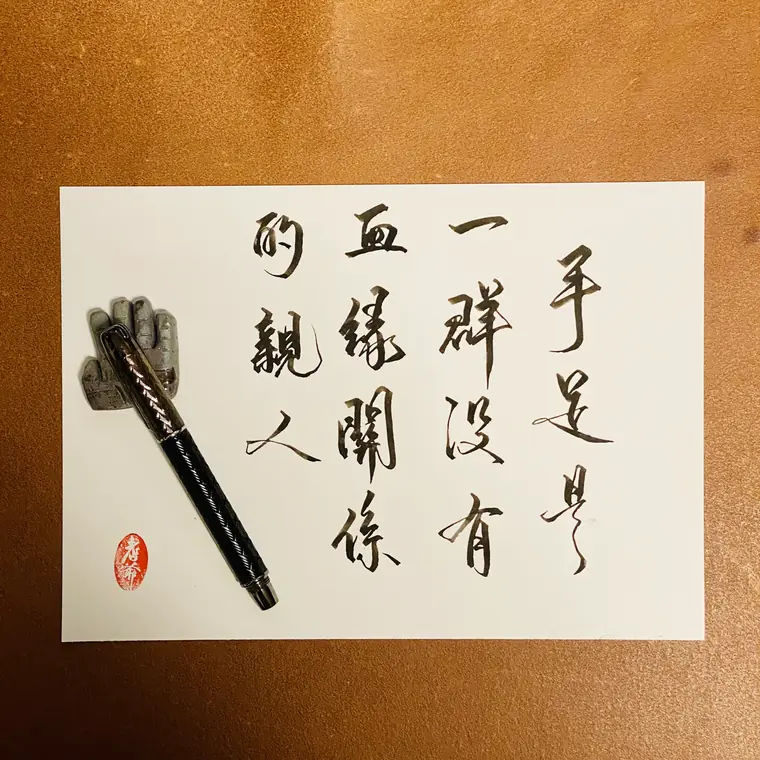 手足是
一群没有
血緣關係
的親人